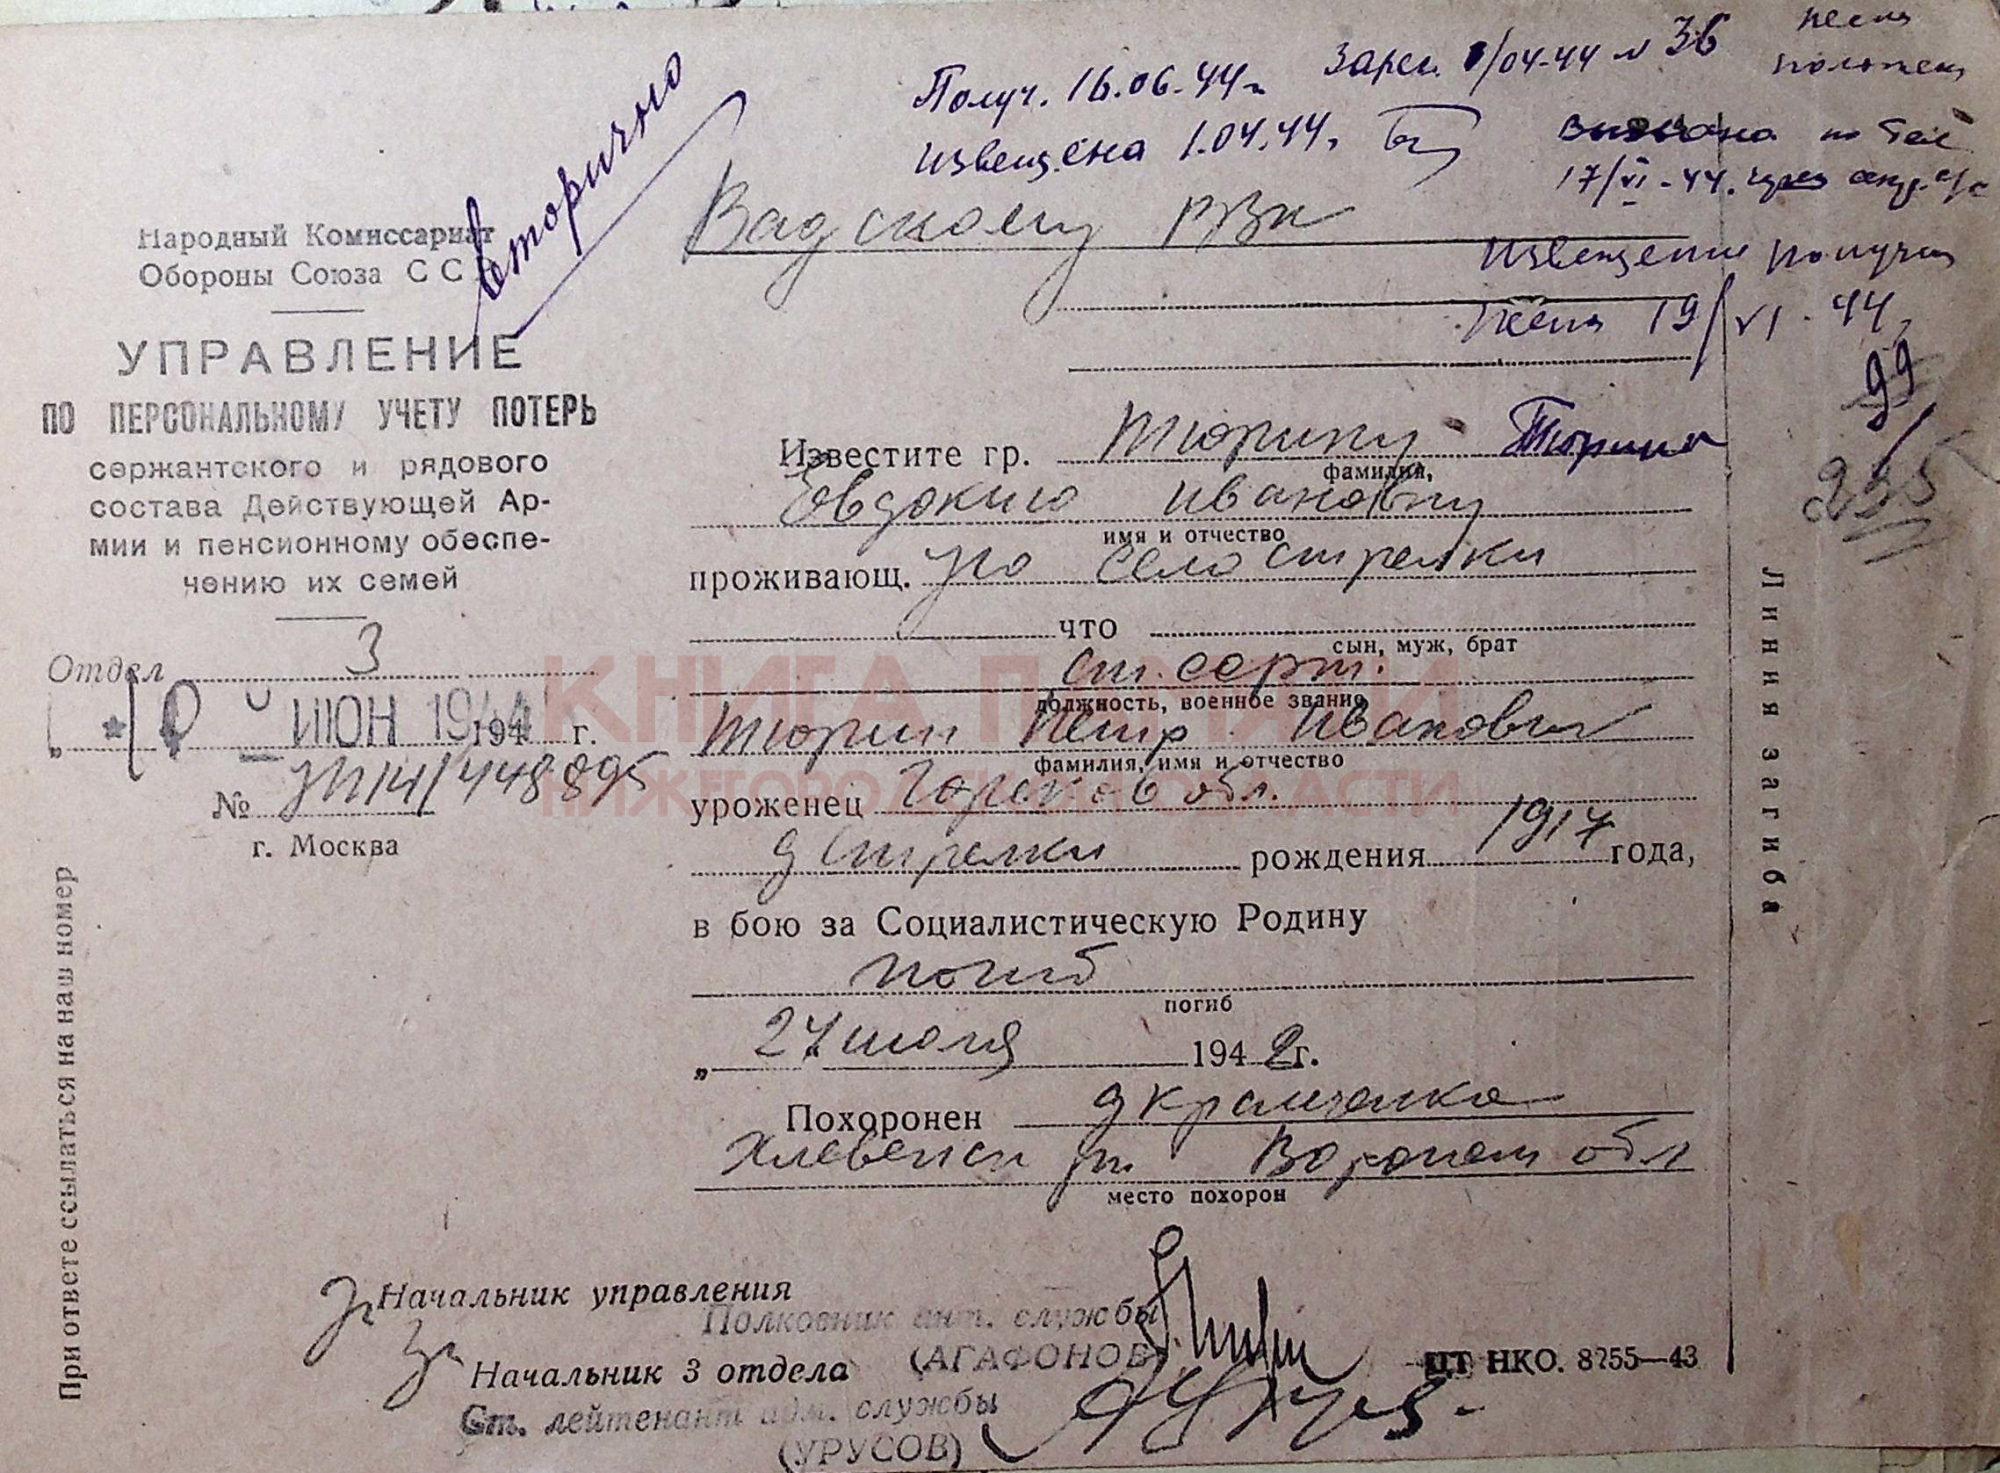 Получ. 16.06.44г. Зарег. 1/04-44 № 36
извещена 1.04.44г.
по тел
17/VI-44. через
Вторично
Вадскому РВК
Извещение получила
жена 19/VI-44,
99
235
Народный Комиссариат
Обороны Союза СС
УПРАВЛЕНИЕ
ПО ПЕРСОНАЛЬНОМУ УЧЕТУ ПОТЕРЬ
сержантского и рядового
состава Действующей Ар-
мии и пенсионному обеспе-
чению их семей
Отдел 3
ИЮН 1944 194 г.
№ УП14/448895
г. Москва
При ответе ссылаться на наш номер
Известите гр. Тюрину Тюрина
фамилия,
Евдокию Ивановну
имя и отчество
проживающ. село Стрелки
что
сын, муж, брат
ст. серж.
должность, военное звание
Тюрин Петр Иванович
фамилия, имя и отчество
уроженец Горьков обл.
д Стрелки рождения 1917 года,
в бою за Социалистическую Родину
погиб
погиб
„ 27 июля 1942 г.
Похоронен д Крамчалка
Хлевенск рн Воронеж обл
место похорон
Начальник управления
Полковник инт. службы
(АГАФОНОВ)
Начальник 3 отдела
Ст. лейтенант адм. службы
(УРУСОВ)
ЦТ НКО. 8255—43
Линия загиба
КНИГА ПАМЯТИ
НИЖЕГОРОДСКОЙ ОБЛАСТИ